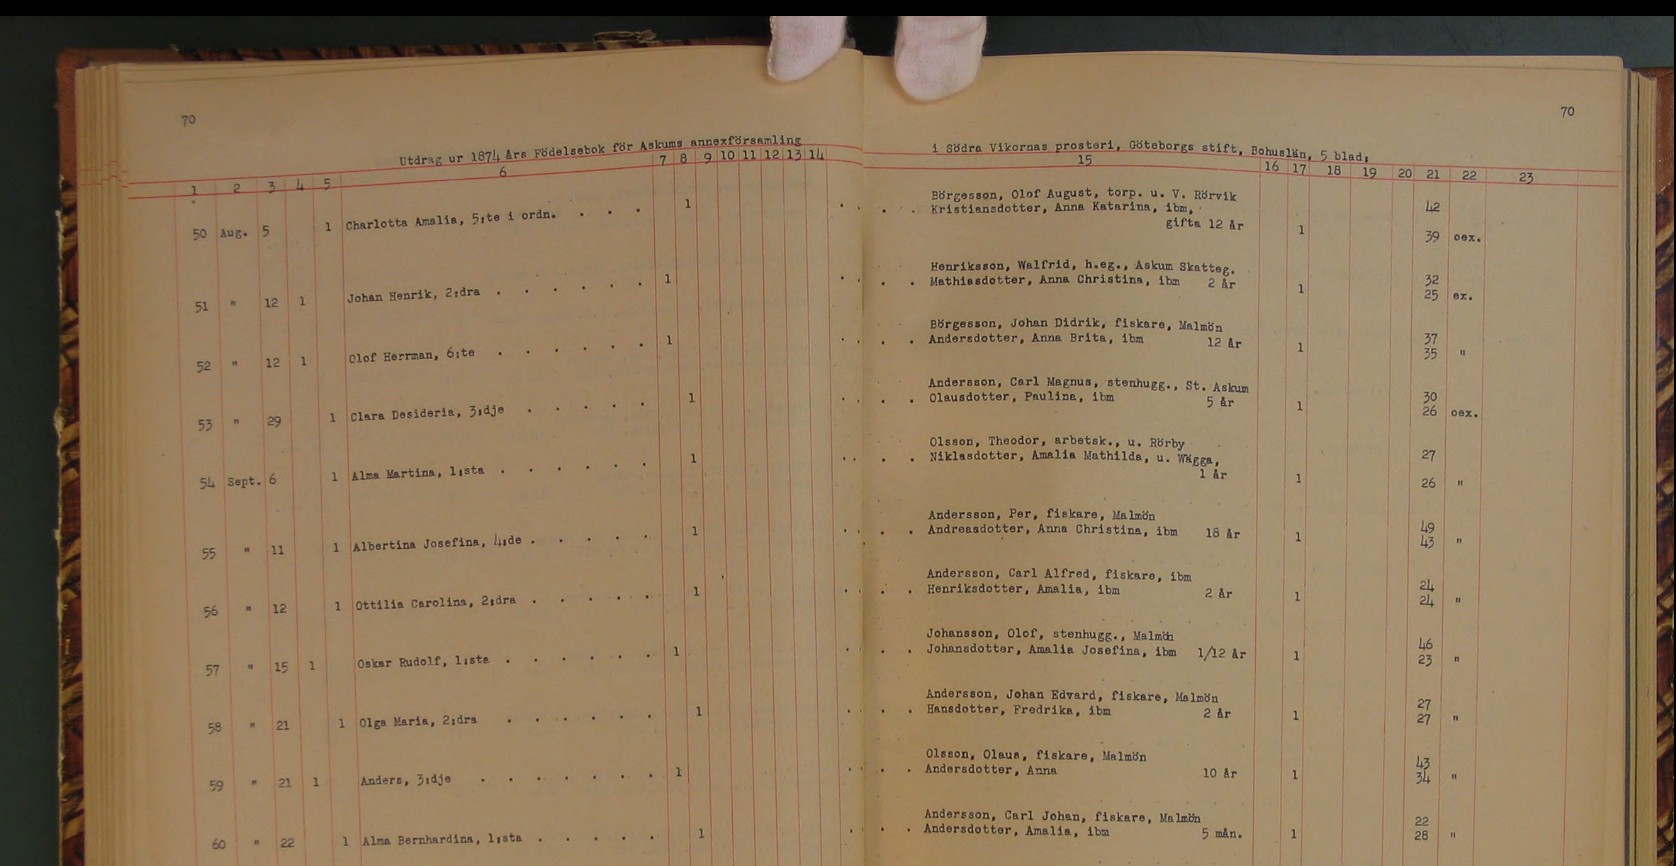 70
70
Utdrag ur 1874 års Födelsebok för Askums annexförsamling
i Södra Vikornas prosteri, Göteborgs stift, Bohuslän, 5 blad,
1 2 3 4 5 6 7 8 9 10 11 12 13 14
15 16 17 18 19 20 21 22 23
50 Aug. 5 1 Charlotta Amalia, 5:te i ordn. . . . 1
Börgesson, Olof August, torp. u. V. Rörvik 42
Kristiansdotter, Anna Katarina, ibm,
gifta 12 år 1 39 oex.
51 " 12 1 Johan Henrik, 2:dra . . . . . . 1
Henriksson, Walfrid, h.eg., Askum Skatteg. 32
Mathiasdotter, Anna Christina, ibm 2 år 1 25 ex.
52 " 12 1 Olof Herrman, 6:te . . . . . . 1
Börgesson, Johan Didrik, fiskare, Malmön 37
Andersdotter, Anna Brita, ibm 12 år 1 35 "
53 " 29 1 Clara Desideria, 3:dje . . . . . 1
Andersson, Carl Magnus, stenhugg., St. Askum 30
Olausdotter, Paulina, ibm 5 år 1 26 oex.
54 Sept. 6 1 Alma Martina, 1:sta . . . . . 1
Olsson, Theodor, arbetsk., u. Rörby 27
Niklasdotter, Amalia Mathilda, u. Wägga,
1 år 1 26 "
55 " 11 1 Albertina Josefina, 4:de . . . . . 1
Andersson, Per, fiskare, Malmön 49
Andreasdotter, Anna Christina, ibm 18 år 1 43 "
56 " 12 1 Ottilia Carolina, 2:dra . . . . . 1
Andersson, Carl Alfred, fiskare, ibm 24
Henriksdotter, Amalia, ibm 2 år 1 24 "
57 " 15 1 Oskar Rudolf, 1:sta . . . . . . 1
Johansson, Olof, stenhugg., Malmön 46
Johansdotter, Amalia Josefina, ibm 1/12 år 1 23 "
58 " 21 1 Olga Maria, 2:dra . . . . . . 1
Andersson, Johan Edvard, fiskare, Malmön 27
Hansdotter, Fredrika, ibm 2 år 1 27 "
59 " 21 1 Anders, 3:dje . . . . . . . 1
Olsson, Olaus, fiskare, Malmön 43
Andersdotter, Anna 10 år 1 34 "
60 " 22 1 Alma Bernhardina, 1:sta . . . . . 1
Andersson, Carl Johan, fiskare, Malmön 22
Andersdotter, Amalia, ibm 5 mån. 1 28 "